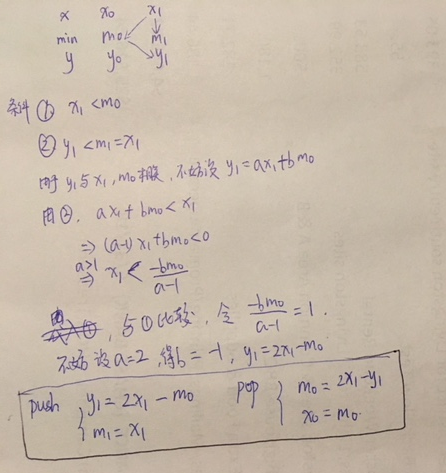 x x₀ x₁
min m₀ m₁
y y₀ y₁
条件 ① x₁ < m₀
② y₁ < m₁ = x₁
由于 y₁与x₁, m₀有关, 不妨设 y₁ = ax₁ + bm₀
由②, ax₁ + bm₀ < x₁
⇒ (a-1) x₁ + bm₀ < 0
a>1 ⇒ x₁ < -bm₀/(a-1)
与①比较, 令 -bm₀/(a-1) = 1.
不妨设 a=2, 得 b = -1, y₁ = 2x₁ - m₀
push { y₁ = 2x₁ - m₀ pop { m₀ = 2x₁ - y₁
m₁ = x₁ x₀ = m₀.